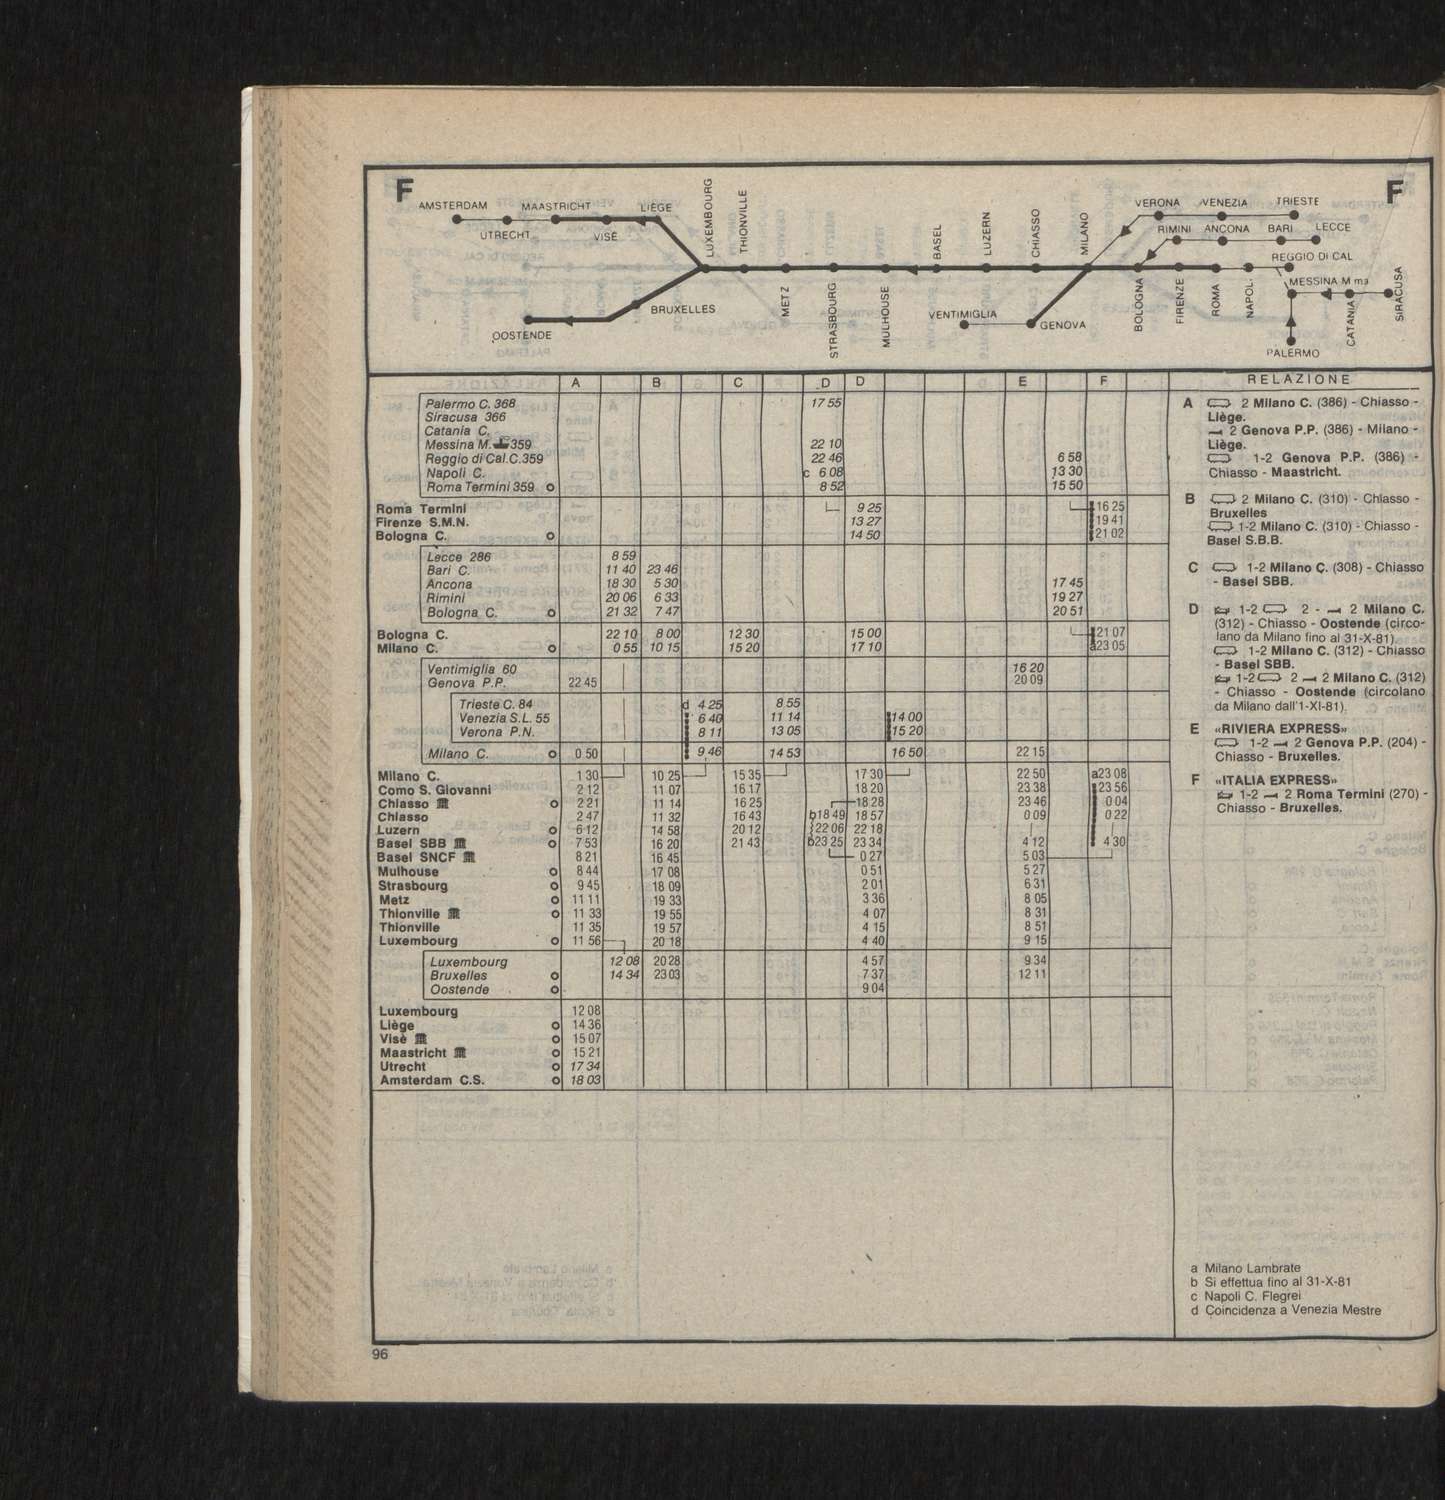 F
F
AMSTERDAM
MAASTRICHT
LIÈGE
UTRECHT
VISÉ
LUXEMBOURG
THIONVILLE
METZ
STRASBOURG
MULHOUSE
BASEL
LUZERN
CHIASSO
MILANO
BRUXELLES
OOSTENDE
VENTIMIGLIA
GENOVA
VERONA VENEZIA TRIESTE
RIMINI ANCONA BARI LECCE
REGGIO DI CAL
MESSINA M ma
BOLOGNA
FIRENZE
ROMA
NAPOLI
CATANIA
SIRACUSA
PALERMO
A B C D D E F
Palermo C. 368 17 55
Siracusa 366
Catania C.
Messina M. 359 22 10
Reggio di Cal.C.359 22 46 6 58
Napoli C. c 6 08 13 30
Roma Termini 359 o 8 52 15 50
Roma Termini 9 25 16 25
Firenze S.M.N. 13 27 19 41
Bologna C. o 14 50 21 02
Lecce 286 8 59
Bari C. 11 40 23 46
Ancona 18 30 5 30 17 45
Rimini 20 06 6 33 19 27
Bologna C. o 21 32 7 47 20 51
Bologna C. 22 10 8 00 12 30 15 00 21 07
Milano C. o 0 55 10 15 15 20 17 10 a23 05
Ventimiglia 60 16 20
Genova P.P. 22 45 20 09
Trieste C. 84 d 4 25 8 55
Venezia S.L. 55 6 40 11 14 14 00
Verona P.N. 8 11 13 05 15 20
Milano C. o 0 50 9 46 14 53 16 50 22 15
Milano C. 1 30 10 25 15 35 17 30 22 50 a23 08
Como S. Giovanni 2 12 11 07 16 17 18 20 23 38 23 56
Chiasso o 2 21 11 14 16 25 18 28 23 46 0 04
Chiasso 2 47 11 32 16 43 b18 49 18 57 0 09 0 22
Luzern o 6 12 14 58 20 12 22 06 22 18
Basel SBB o 7 53 16 20 21 43 b23 25 23 34 4 12 4 30
Basel SNCF 8 21 16 45 0 27 5 03
Mulhouse o 8 44 17 08 0 51 5 27
Strasbourg o 9 45 18 09 2 01 6 31
Metz o 11 11 19 33 3 36 8 05
Thionville o 11 33 19 55 4 07 8 31
Thionville 11 35 19 57 4 15 8 51
Luxembourg o 11 56 20 18 4 40 9 15
Luxembourg 12 08 20 28 4 57 9 34
Bruxelles o 14 34 23 03 7 37 12 11
Oostende o 9 04
Luxembourg 12 08
Liège o 14 36
Visè o 15 07
Maastricht o 15 21
Utrecht o 17 34
Amsterdam C.S. o 18 03
RELAZIONE
A 2 Milano C. (386) - Chiasso -
Liège.
2 Genova P.P. (386) - Milano -
Liège.
1-2 Genova P.P. (386) -
Chiasso - Maastricht.
B 2 Milano C. (310) - Chiasso -
Bruxelles
1-2 Milano C. (310) - Chiasso -
Basel S.B.B.
C 1-2 Milano C. (308) - Chiasso
- Basel SBB.
D 1-2 2 - 2 Milano C.
(312) - Chiasso - Oostende (circo-
lano da Milano fino al 31-X-81).
1-2 Milano C. (312) - Chiasso
- Basel SBB.
1-2 2 2 Milano C. (312)
- Chiasso - Oostende (circolano
da Milano dall'1-XI-81).
E «RIVIERA EXPRESS»
1-2 2 Genova P.P. (204) -
Chiasso - Bruxelles.
F «ITALIA EXPRESS»
1-2 2 Roma Termini (270) -
Chiasso - Bruxelles.
a Milano Lambrate
b Si effettua fino al 31-X-81
c Napoli C. Flegrei
d Coincidenza a Venezia Mestre
96